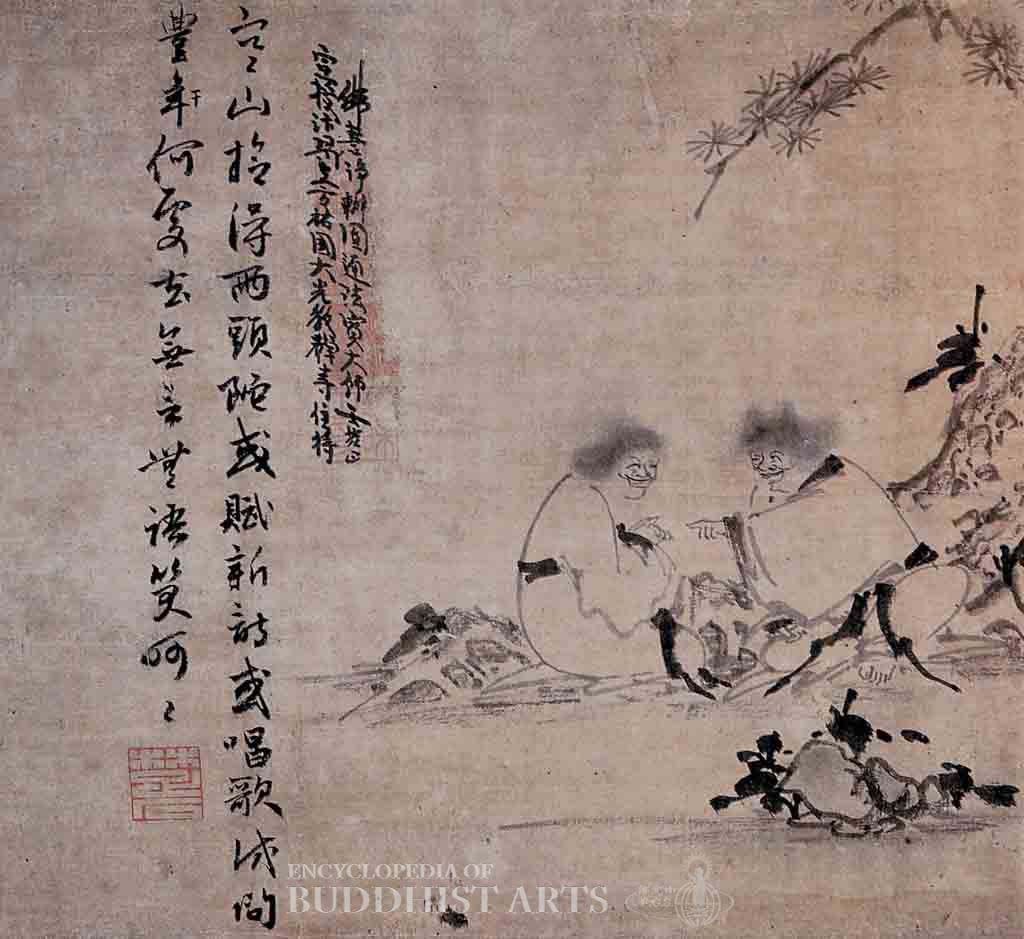 宣授汴梁上方祐國大光教禪寺住持
佛慧淨辯圓通法寶大師壬梵因
寒山拾得兩頭陀或賦新詩或唱歌試問
豐年干何處去無言無語笑呵〻
ENCYCLOPEDIA OF
BUDDHIST ARTS